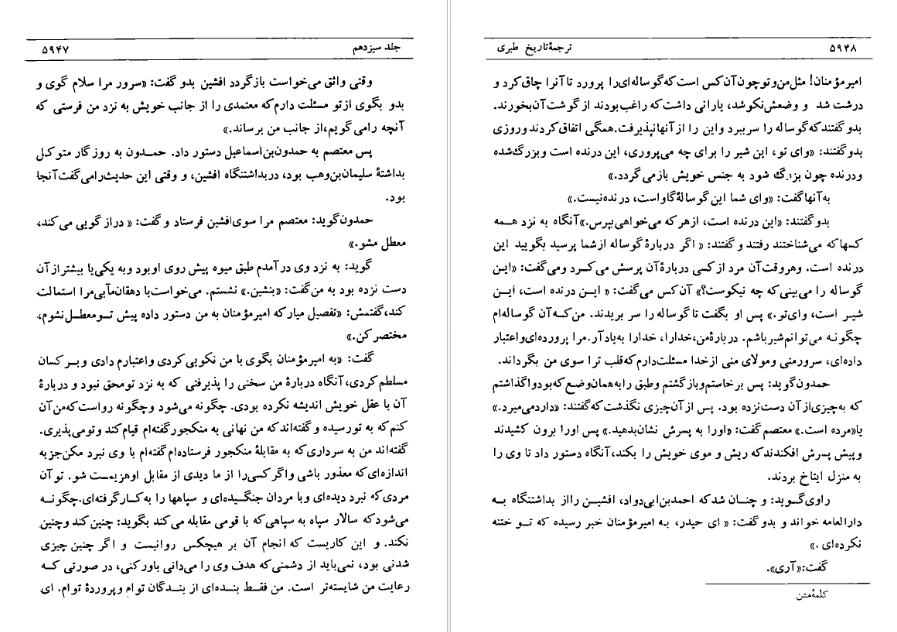 جلد سیزدهم ۵۹۴۷
وقتی واثق می‌خواست بازگردد افشین بدو گفت: «سرور مرا سلام گوی و
بدو بگوی از تو مسئلت دارم که معتمدی را از جانب خویش به نزد من فرستی که
آنچه را می‌گویم، از جانب من برساند.»
پس معتصم به حمدون بن اسماعیل دستور داد. حمدون به روزگار متوکل
بداشتهٔ سلیمان بن وهب بود، در بداشتنگاه افشین، و وقتی این حدیث را می‌گفت آنجا
بود.
حمدون گوید: معتصم مرا سوی افشین فرستاد و گفت: «دراز گویی می‌کند،
معطل مشو.»
گوید: به نزد وی در آمدم طبق میوه پیش روی او بود و به یکی یا بیشتر از آن
دست نزده بود به من گفت: «بنشین.» نشستم. می‌خواست با دهقان مآبی مرا استمالت
کند، گفتمش: «تفصیل میار که امیرمؤمنان به من دستور داده پیش تو معطل نشوم،
مختصر کن.»
گفت: «به امیرمؤمنان بگوی با من نکویی کردی و اعتبارم دادی و بر کسان
مسلطم کردی، آنگاه دربارهٔ من سخنی را پذیرفتی که به نزد تو محقق نبود و دربارهٔ
آن با عقل خویش اندیشه نکرده بودی. چگونه می‌شود و چگونه رواست که من آن
کنم که به تو رسیده و گفته‌اند که من نهانی به منکجور گفته‌ام قیام کند و تو می‌پذیری.
گفته‌اند من به سرداری که به مقابلهٔ منکجور فرستاده‌ام گفته‌ام با وی نبرد مکن جز به
اندازه‌ای که معذور باشی و اگر کسی را از ما دیدی از مقابل او هزیمت شو. تو آن
مردی که نبرد دیده‌ای و با مردان جنگیده‌ای و سپاهها را به کار گرفته‌ای. چگونه
می‌شود که سالار سپاه به سپاهی که با قومی مقابله می‌کند بگوید: چنین کند و چنین
نکند. و این کاریست که انجام آن بر هیچکس روا نیست و اگر چنین چیزی
شدنی بود، نمی‌باید از دشمنی که هدف وی را می‌دانی باور کنی، در صورتی که
رعایت من شایسته‌تر است. من فقط بنده‌ای از بندگان توام و پروردهٔ توام. ای
۵۹۴۸ ترجمهٔ تاریخ طبری
امیرمؤمنان! مثل من و تو چون آن کس است که گوساله‌ای را پرورد تا آنرا چاق کرد و
درشت شد و وضعش نکو شد، یارانی داشت که راغب بودند از گوشت آن بخورند.
بدو گفتند که گوساله را سر ببرد و این را از آنها نپذیرفت. همگی اتفاق کردند و روزی
بدو گفتند: «وای تو، این شیر را برای چه می‌پروری، این درنده است و بزرگ شده
و درنده چون بزرگ شود به جنس خویش باز می‌گردد.»
به آنها گفت: «وای شما این گوسالهٔ گاو است، درنده نیست.»
بدو گفتند: «این درنده است، از هر که می‌خواهی بپرس.» آنگاه به نزد همه
کسها که می‌شناختند رفتند و گفتند: «اگر دربارهٔ گوساله از شما پرسید بگویید این
درنده است. و هر وقت آن مرد از کسی دربارهٔ آن پرسش می‌کرد و می‌گفت: «این
گوساله را می‌بینی که چه نیکوست؟» آن کس می‌گفت: «این درنده است، این
شیر است، وای تو.» پس او بگفت تا گوساله را سر بریدند. من که آن گوساله‌ام
چگونه می‌توانم شیر باشم. دربارهٔ من، خدا را، خدا را به یاد آر. مرا پرورده‌ای و اعتبار
داده‌ای، سرور منی و مولای منی از خدا مسئلت دارم که قلب ترا سوی من بگرداند.
حمدون گوید: پس برخاستم و بازگشتم و طبق را به همان وضع که بود واگذاشتم
که به چیزی از آن دست نزده بود. پس از آن چیزی نگذشت که گفتند: «دارد می‌میرد.»
یا «مرده است.» معتصم گفت: «او را به پسرش نشان بدهید.» پس او را برون کشیدند
و پیش پسرش افکندند که ریش و موی خویش را بکند، آنگاه دستور داد تا وی را
به منزل ایتاخ بردند.
راوی گوید: و چنان شد که احمد بن ابی دواد، افشین را از بداشتنگاه به
دارالعامه خواند و بدو گفت: «ای حیدر، به امیرمؤمنان خبر رسیده که تو ختنه
نکرده‌ای.»
گفت: «آری».
کلمهٔ متن